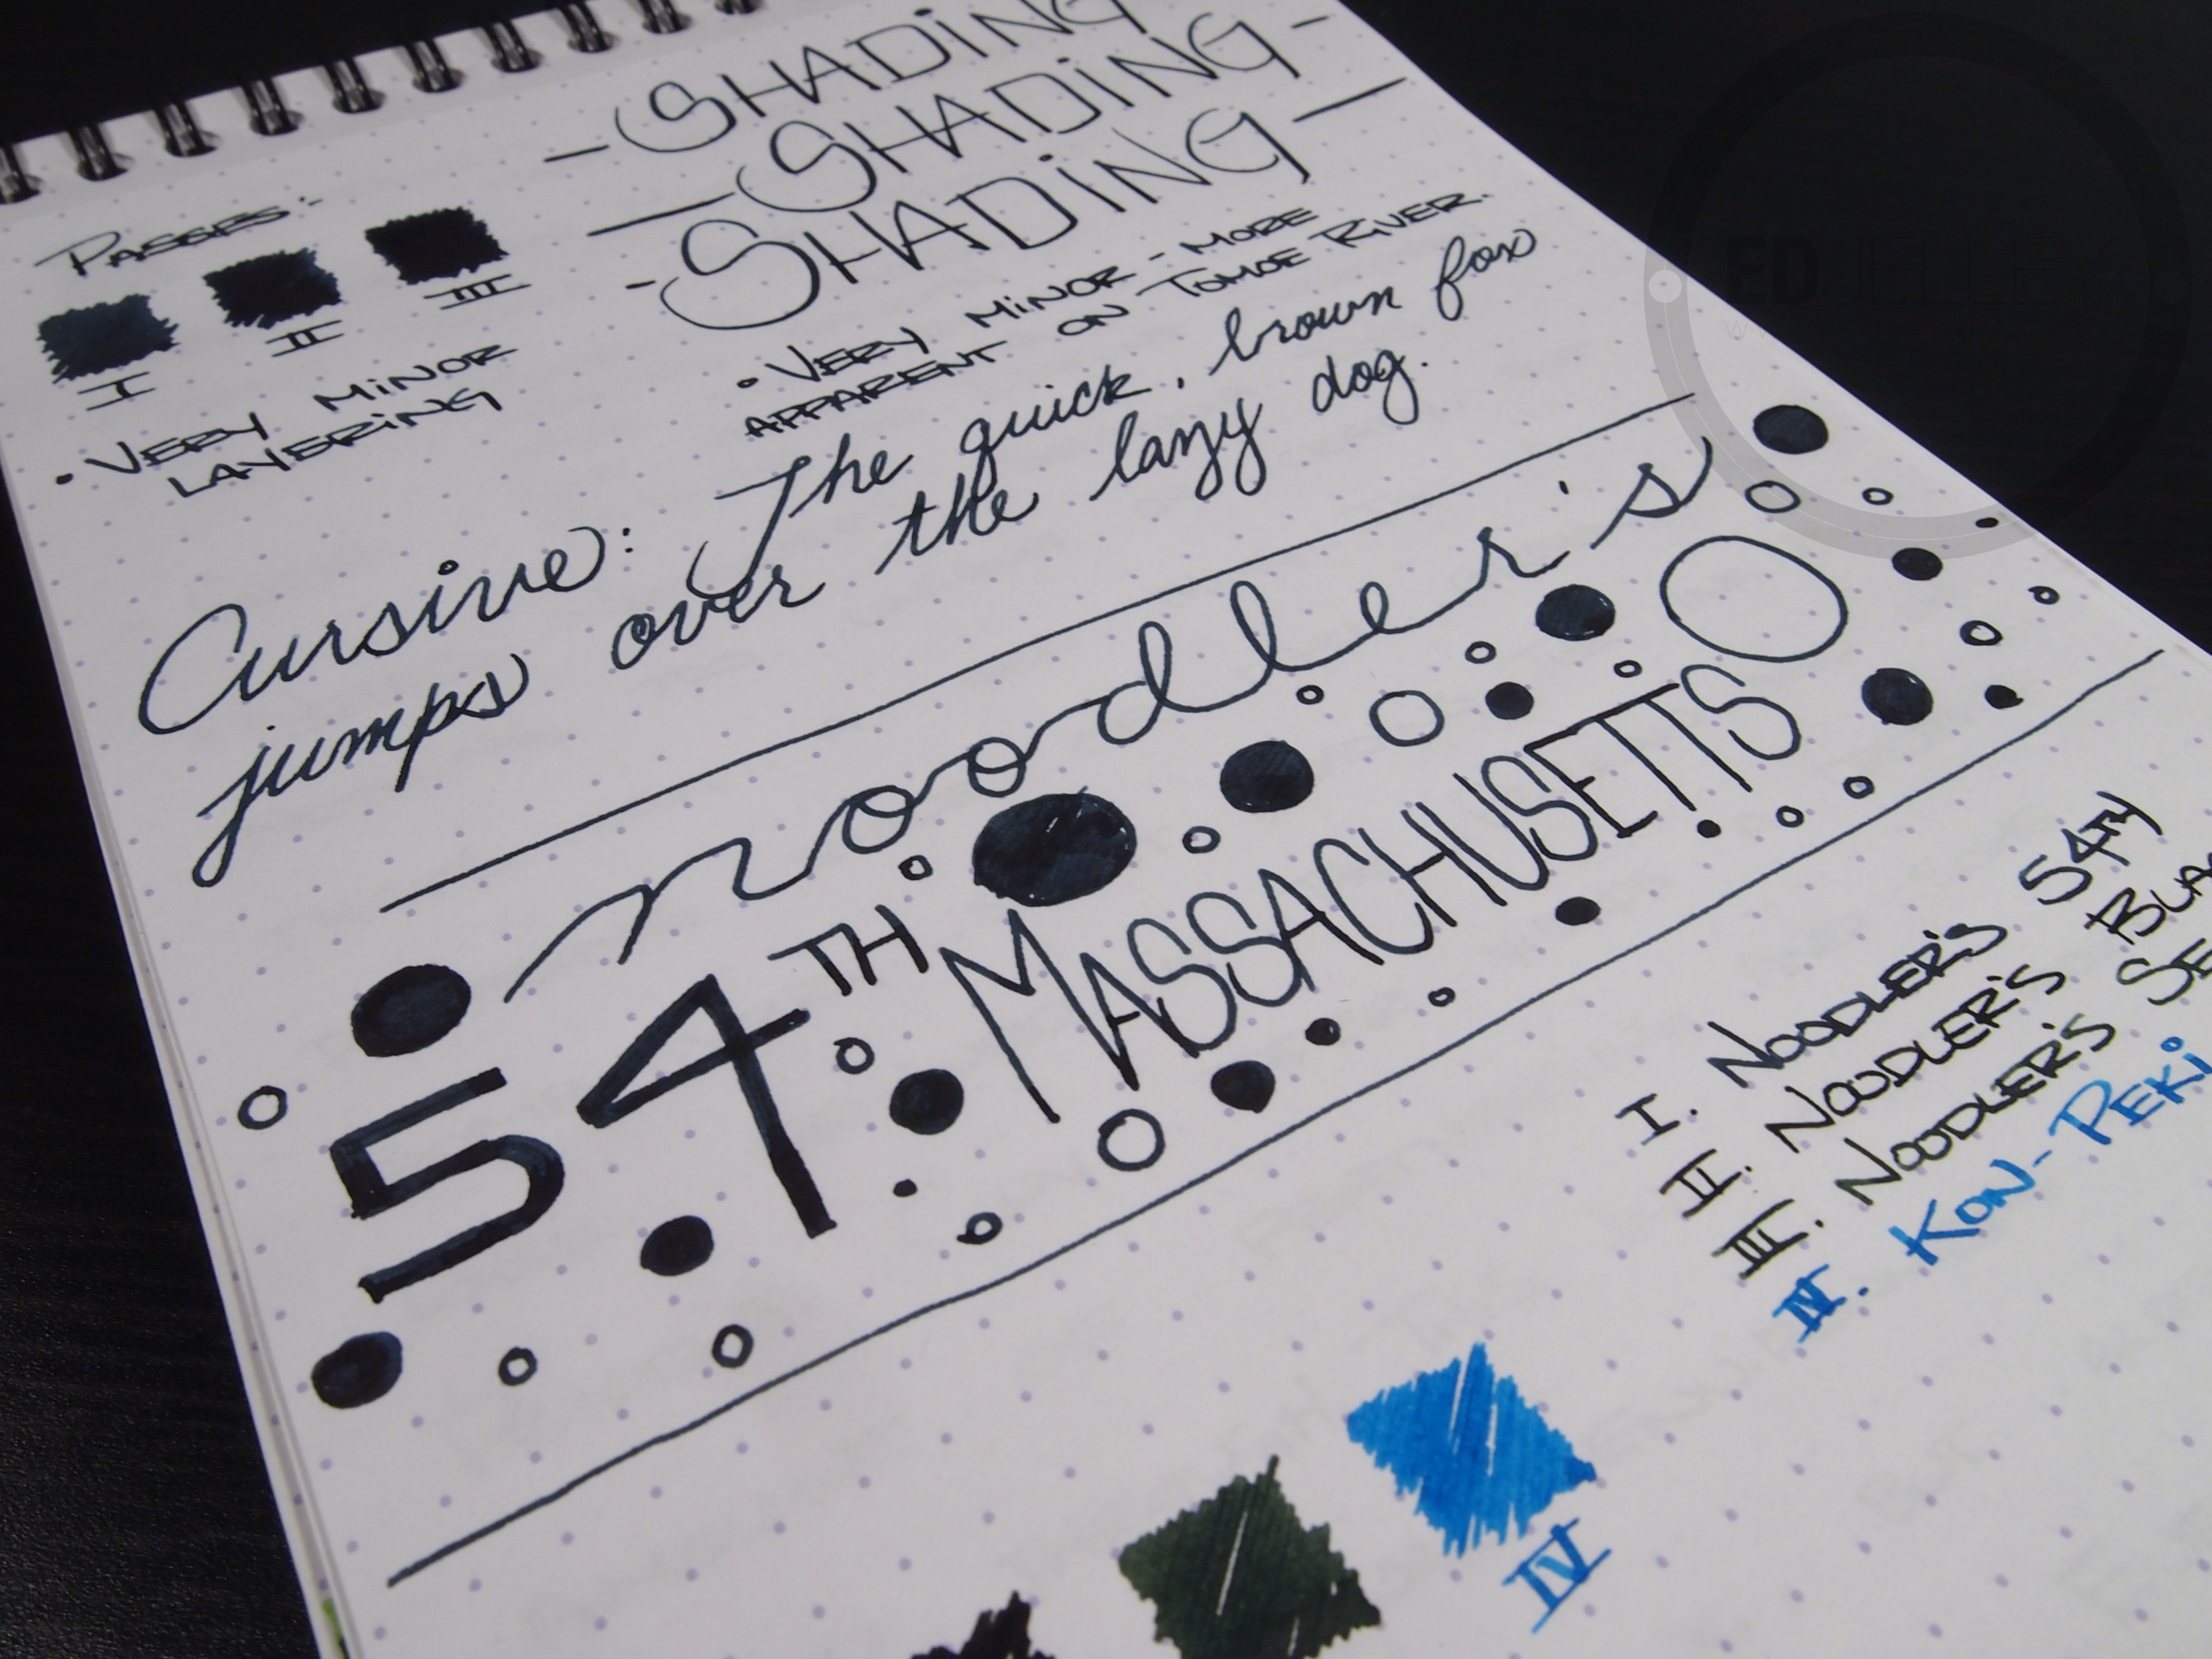 - SHADiNG
— SHADiNG -
- SHADiNG —
PASSES:-
I II III
• VERY MiNOR
LAYERiNG
• VERY MiNOR - MORE
APPARENT ON TOMOE RiVER.
Cursive: The quick, brown fox
jumps over the lazy dog.
noodler's
54TH MASSACHUSETTS
I. NOODLER'S 54TH
II. NOODLER'S
III. NOODLER'S
IV. KON-PEKi
IV
EDJELLEY